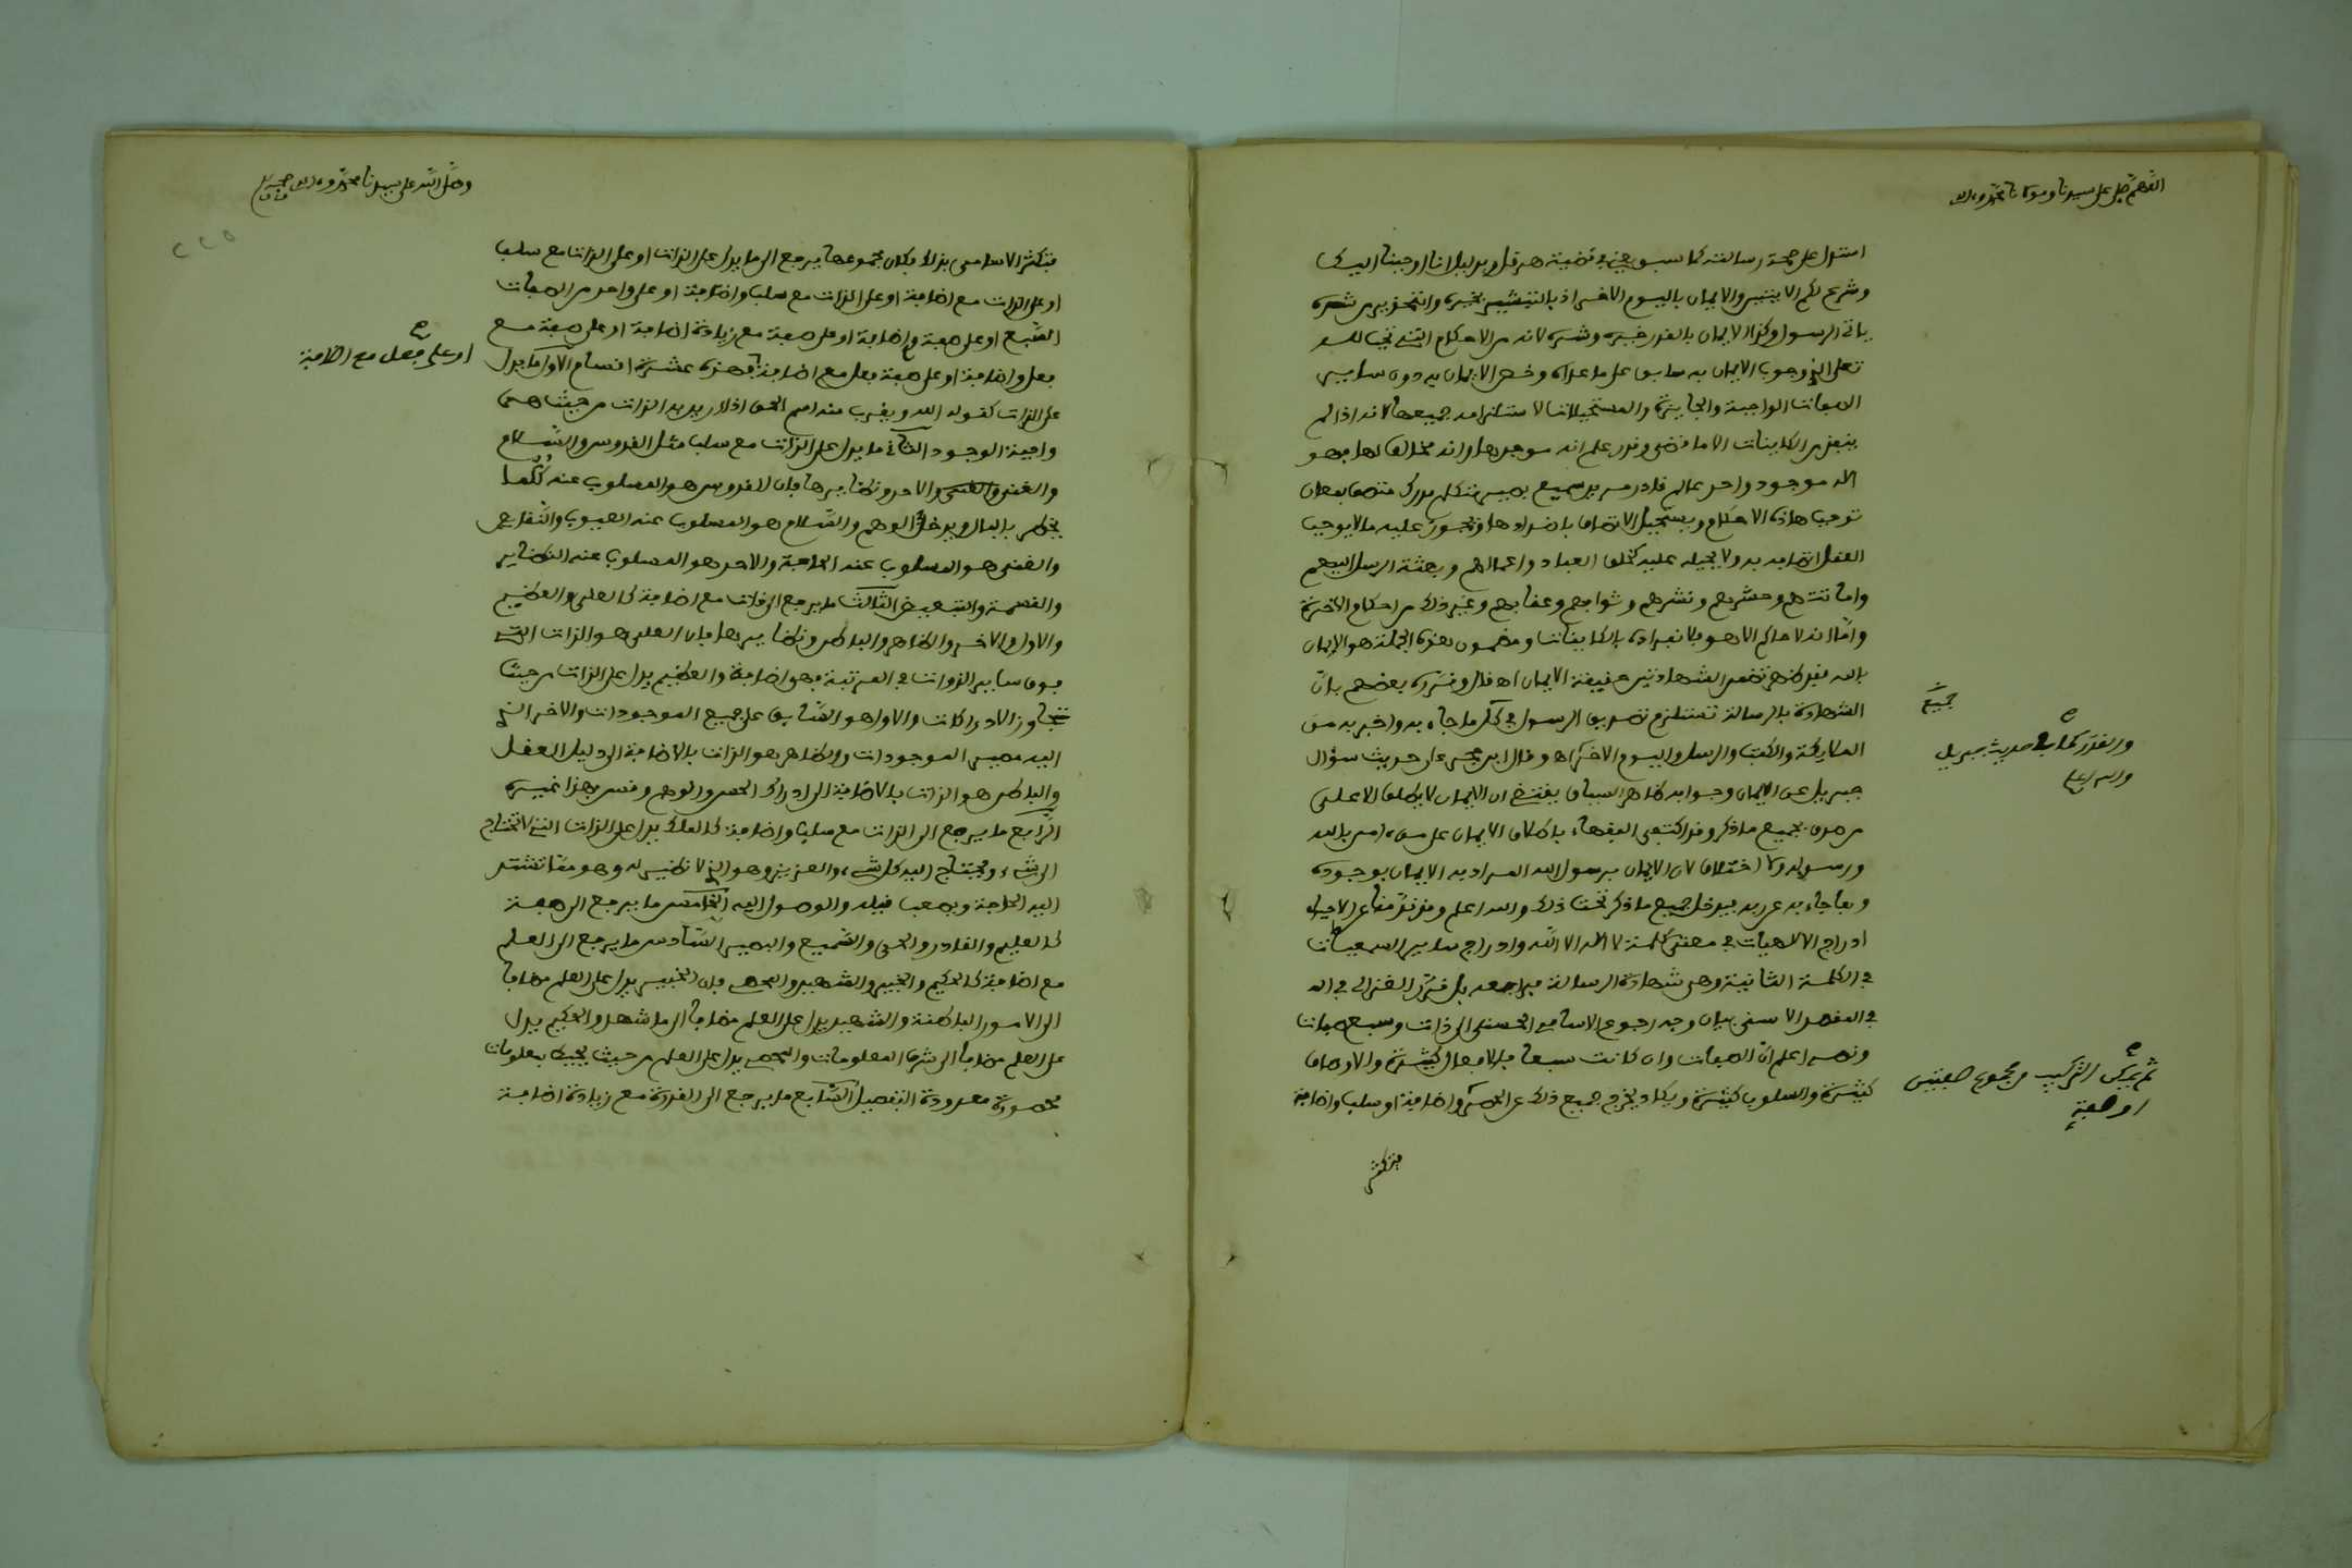 اللهم صل على سيدنا ومولانا محمد وءاله
استدل على صحة رسالته كما سبق في قضية هرقل وبدليل انا اوحينا اليك
وشرع لكم الاثنين والايمان باليوم الاخر اذ بالتبشير بخيره والتحذير من شره
ياتي الرسول وكذا الايمان بالقدر خيره وشره لانه من الاحكام التي تجب لله
تعلى اذ وجوب الايمان به سابق على ما عداه وخص الايمان به دون ساير
الصفات الواجبة والجايزة والمستحيلات لاستلزامه جميعها لانه اذا لم
ينفذ من الكاينات الا ما قضى وقدر علم انه موجدها وانه مخالف لها فهو
اله موجود واحد عالم قادر مريد سميع بصير متكلم مدرك متصف بمعان
توجب هاذه الاحكام ويستحيل الاتصاف باضدادها وتجوز عليه ما لا يوجب
العقل اتصافه به ولا يحيله عليه كخلق العباد واعمالهم وبعثة الرسل اليهم
واماتتهم وحشرهم ونشرهم وثوابهم وعقابهم وغير ذلك من احكام الاخرة
وامّا انه لا حاكم الا هو فلانفراده بالكاينات ومضمون هذه الجملة هو الايمان
بالله فقد ظهر تضمن الشهادتين حقيقة الايمان اه قال وقرره بعضهم بانّ
الشهادة بالرسالة تستلزم تصديق الرسول في كل ما جاء به واخبر به من
جميع
الملايكة والكتب والرسل واليوم الاخر اه وقال ابن حجر على حديث سؤال
والقدر كما في حديث جبريل
جبريل عن الايمان وجوابه ظاهر السياق يقتضي ان الايمان لا يطلق الا على
من صدق بجميع ما ذكر وقد اكتفى الفقهاء باطلاق الايمان على من ءامن بالله
ورسوله ولا اختلاف لان الايمان برسول الله المراد به الايمان بوجوده
وبما جاء به عن ربه فيدخل جميع ما ذكر تحت ذلك والله اعلم وقد تقدم ما في الاحياء
ادراج الالاهيات في معنى كلمة لا اله الا الله وادراج ساير السمعيات
في الكلمة الثانية وهي شهادة الرسالة فراجعه بل قرّر الغزالي في اله
في المقصد الاسنى بيان وجه رجوع الاسامي الحسنى الى ذات وسبع صفات
ونصه اعلم انّ الصفات وان كانت سبعا فالافعال كثيرة والاوصاف
كثيرة والسلوب كثيرة ويكاد يخرج جميع ذلك عن الحصر واضافة او سلب واضافة
ثم يمكن التركيب من مجموع صفتين
او صفة
فتكثر
وصلى الله على سيدنا محمد وءاله وصحبه
٢٢٥
فتكثر الاسامي بذلك فكان مجموعها يرجع الى ما يدل على الذات او على الذات مع سلب
او على الذات مع اضافة او على الذات مع سلب واضافة او على واحد من الصفات
السّبع او على صفة واضافة او على صفة مع زيادة اضافة او على صفة مع
فعل واضافة او على صفة فعل مع اضافة فهذه عشرة اقسام الاول ما يدل
او على فعل مع اضافة
على الذات كقوله الله ويقرب منه اسم الحق اذا اريد به الذات من حيث هي
واجبة الوجود الثاني ما يدل على الذات مع سلب مثل القدوس والسّلام
والغني والاحد ونظايرها فان القدوس هو المسلوب عنه كلّ ما
يخطر بالبال ويدخل في الوهم والسّلام هو المسلوب عنه العيوب والنقايص
والغني هو المسلوب عنه الحاجة والاحد هو المسلوب عنه النظاير
والقسمة والتبعيض الثّالث ما يرجع الى الذات مع اضافة كالعلي والعظيم
والاول والاخر والظاهر والباطن ونظايرها فان العلي هو الذات التي
فوق ساير الذوات في المرتبة فهي اضافة والعظيم يدل على الذات من حيث
تجاوز الادراكات والاول هو السّابق على جميع الموجودات والاخر الذي
اليه مصير الموجودات والظاهر هو الذات بالاضافة الى دليل العقل
والباطن هو الذات بالاضافة الى ادراك الحس والوهم وقس بهذا غيره
الرّابع ما يرجع الى الذات مع سلب واضافة كالملك يدل على الذات التي لا تحتاج
الى شيء ويحتاج اليه كل شيء والعزيز وهو الذي لا نظير له وهو مما تشتد
اليه الحاجة ويصعب نيله والوصول اليه الخامس ما يرجع الى صفة
كالعليم والقادر والحي والسّميع والبصير السّادس ما يرجع الى العلم
مع اضافة كالحكيم والخبير والشهيد والمحصي فان الخبير يدل على العلم مضافا
الى الامور الباطنة والشهيد يدل على العلم مضافا الى ما شهد والحكيم يدل
على العلم مضافا الى شرف المعلومات والمحصي يدل على العلم من حيث يحيط بمعلومات
محصورة معدودة التفصيل السّابع ما يرجع الى القدرة مع زيادة اضافة